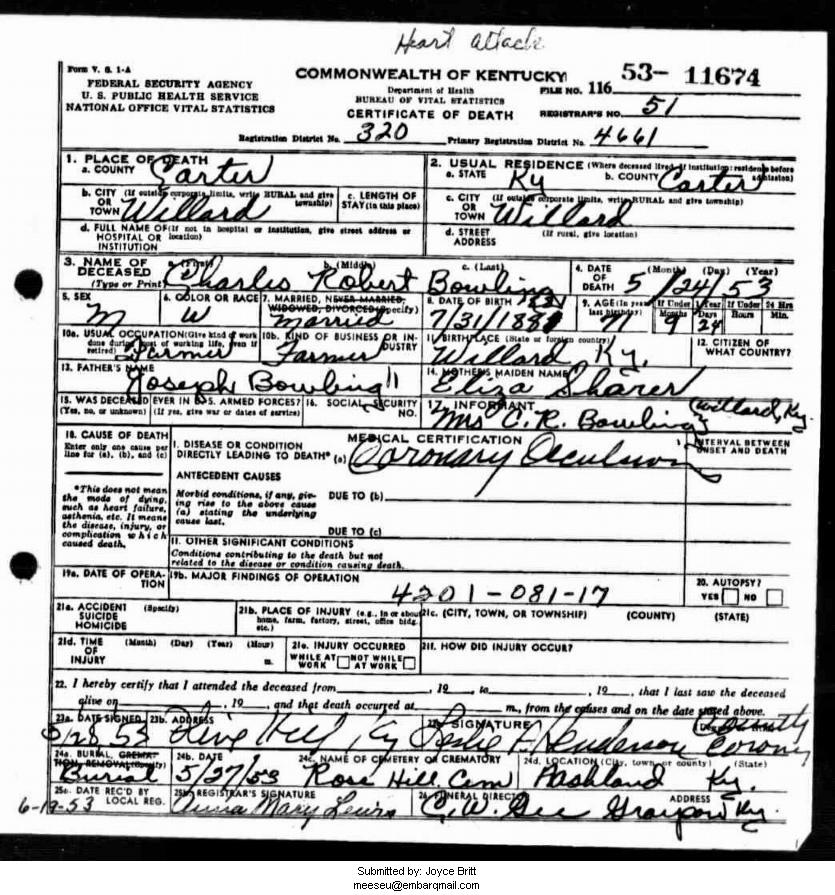 Heart attack
Form V. S. 1-A
FEDERAL SECURITY AGENCY
U. S. PUBLIC HEALTH SERVICE
NATIONAL OFFICE VITAL STATISTICS
COMMONWEALTH OF KENTUCKY
Department of Health
BUREAU OF VITAL STATISTICS
CERTIFICATE OF DEATH
FILE NO. 116 53- 11674
REGISTRAR'S NO. 51
Registration District No. 320 Primary Registration District No. 4661
1. PLACE OF DEATH
a. COUNTY Carter
2. USUAL RESIDENCE (Where deceased lived. If institution: residence before admission)
a. STATE Ky b. COUNTY Carter
b. CITY (If outside corporate limits, write RURAL and give township)
OR TOWN Willard
c. LENGTH OF STAY (in this place)
c. CITY (If outside corporate limits, write RURAL and give township)
OR TOWN Willard
d. FULL NAME OF (If not in hospital or institution, give street address or location)
HOSPITAL OR INSTITUTION
d. STREET ADDRESS (If rural, give location)
3. NAME OF DECEASED (Type or Print)
a. (First) b. (Middle) c. (Last)
Charles Robert Bowling
4. DATE OF DEATH (Month) (Day) (Year)
5/24/53
5. SEX
M
6. COLOR OR RACE
W
7. MARRIED, NEVER MARRIED, WIDOWED, DIVORCED (Specify)
Married
8. DATE OF BIRTH
7/31/1881
9. AGE (In years last birthday) If Under 1 Year If Under 24 Hrs
71 Months 9 Days 24 Hours Min.
10a. USUAL OCCUPATION (Give kind of work done during most of working life, even if retired)
Farmer
10b. KIND OF BUSINESS OR INDUSTRY
Farmer
11. BIRTHPLACE (State or foreign country)
Willard Ky.
12. CITIZEN OF WHAT COUNTRY?
13. FATHER'S NAME
Joseph Bowling
14. MOTHER'S MAIDEN NAME
Eliza Sharer
15. WAS DECEASED EVER IN U.S. ARMED FORCES?
(Yes, no, or unknown) (If yes, give war or dates of service)
16. SOCIAL SECURITY NO.
17. INFORMANT
Mrs C. R. Bowling (Willard, Ky.
18. CAUSE OF DEATH
Enter only one cause per line for (a), (b), and (c)
*This does not mean the mode of dying, such as heart failure, asthenia, etc. It means the disease, injury, or complication which caused death.
MEDICAL CERTIFICATION
INTERVAL BETWEEN ONSET AND DEATH
I. DISEASE OR CONDITION
DIRECTLY LEADING TO DEATH* (a) Coronary Occulsion
ANTECEDENT CAUSES
Morbid conditions, if any, giving rise to the above cause (a) stating the underlying cause last.
DUE TO (b)
DUE TO (c)
II. OTHER SIGNIFICANT CONDITIONS
Conditions contributing to the death but not related to the disease or condition causing death.
19a. DATE OF OPERATION
19b. MAJOR FINDINGS OF OPERATION
4201-081-17
20. AUTOPSY?
YES NO
21a. ACCIDENT (Specify)
SUICIDE
HOMICIDE
21b. PLACE OF INJURY (e.g., in or about home, farm, factory, street, office bldg. etc.)
21c. (CITY, TOWN, OR TOWNSHIP) (COUNTY) (STATE)
21d. TIME OF INJURY (Month) (Day) (Year) (Hour) m.
21e. INJURY OCCURRED
WHILE AT WORK NOT WHILE AT WORK
21f. HOW DID INJURY OCCUR?
22. I hereby certify that I attended the deceased from , 19 , to , 19 , that I last saw the deceased
alive on , 19 , and that death occurred at m., from the causes and on the date stated above.
23a. DATE SIGNED
5/28 53
23b. ADDRESS
Olive Hill Ky
23c. SIGNATURE
Leslie F. Henderson County Corony
24a. BURIAL, CREMATION, REMOVAL (Specify)
Burial
24b. DATE
5/27/53
24c. NAME OF CEMETERY OR CREMATORY
Rose Hill Cem
24d. LOCATION (City, town or county) (State)
Ashland Ky.
25a. DATE REC'D BY LOCAL REG.
6-19-53
25b. REGISTRAR'S SIGNATURE
Anna Mary Lewis
26. FUNERAL DIRECTOR ADDRESS
C. W. Gee Grayson Ky.
Submitted by: Joyce Britt
meeseu@embarqmail.com